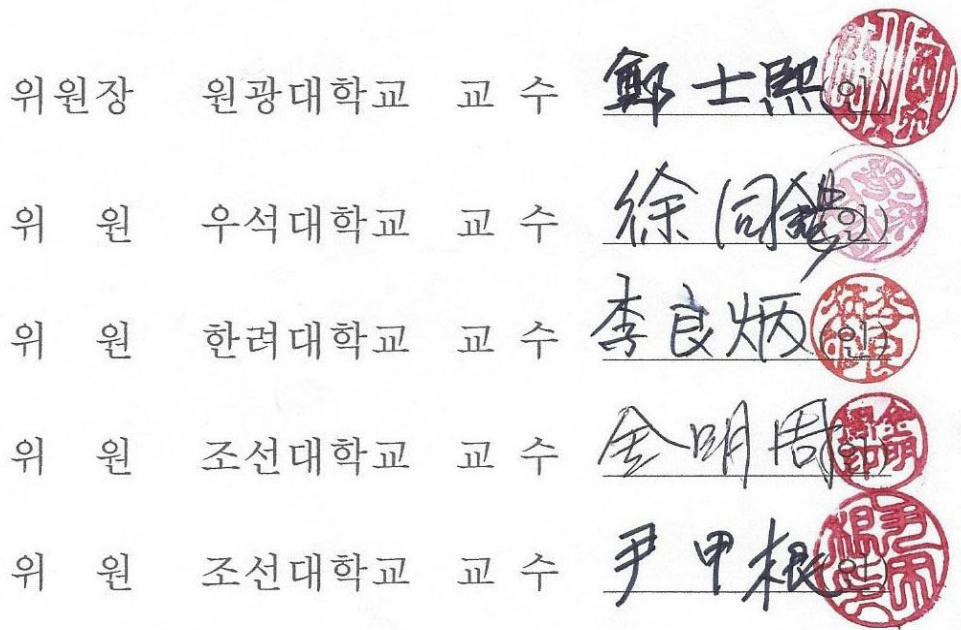 위원장 원광대학교 교 수 鄭士熙 (인)
위 원 우석대학교 교 수 徐同 (인)
위 원 한려대학교 교 수 李良炳 (인)
위 원 조선대학교 교 수 金明周 (인)
위 원 조선대학교 교 수 尹甲根 (인)